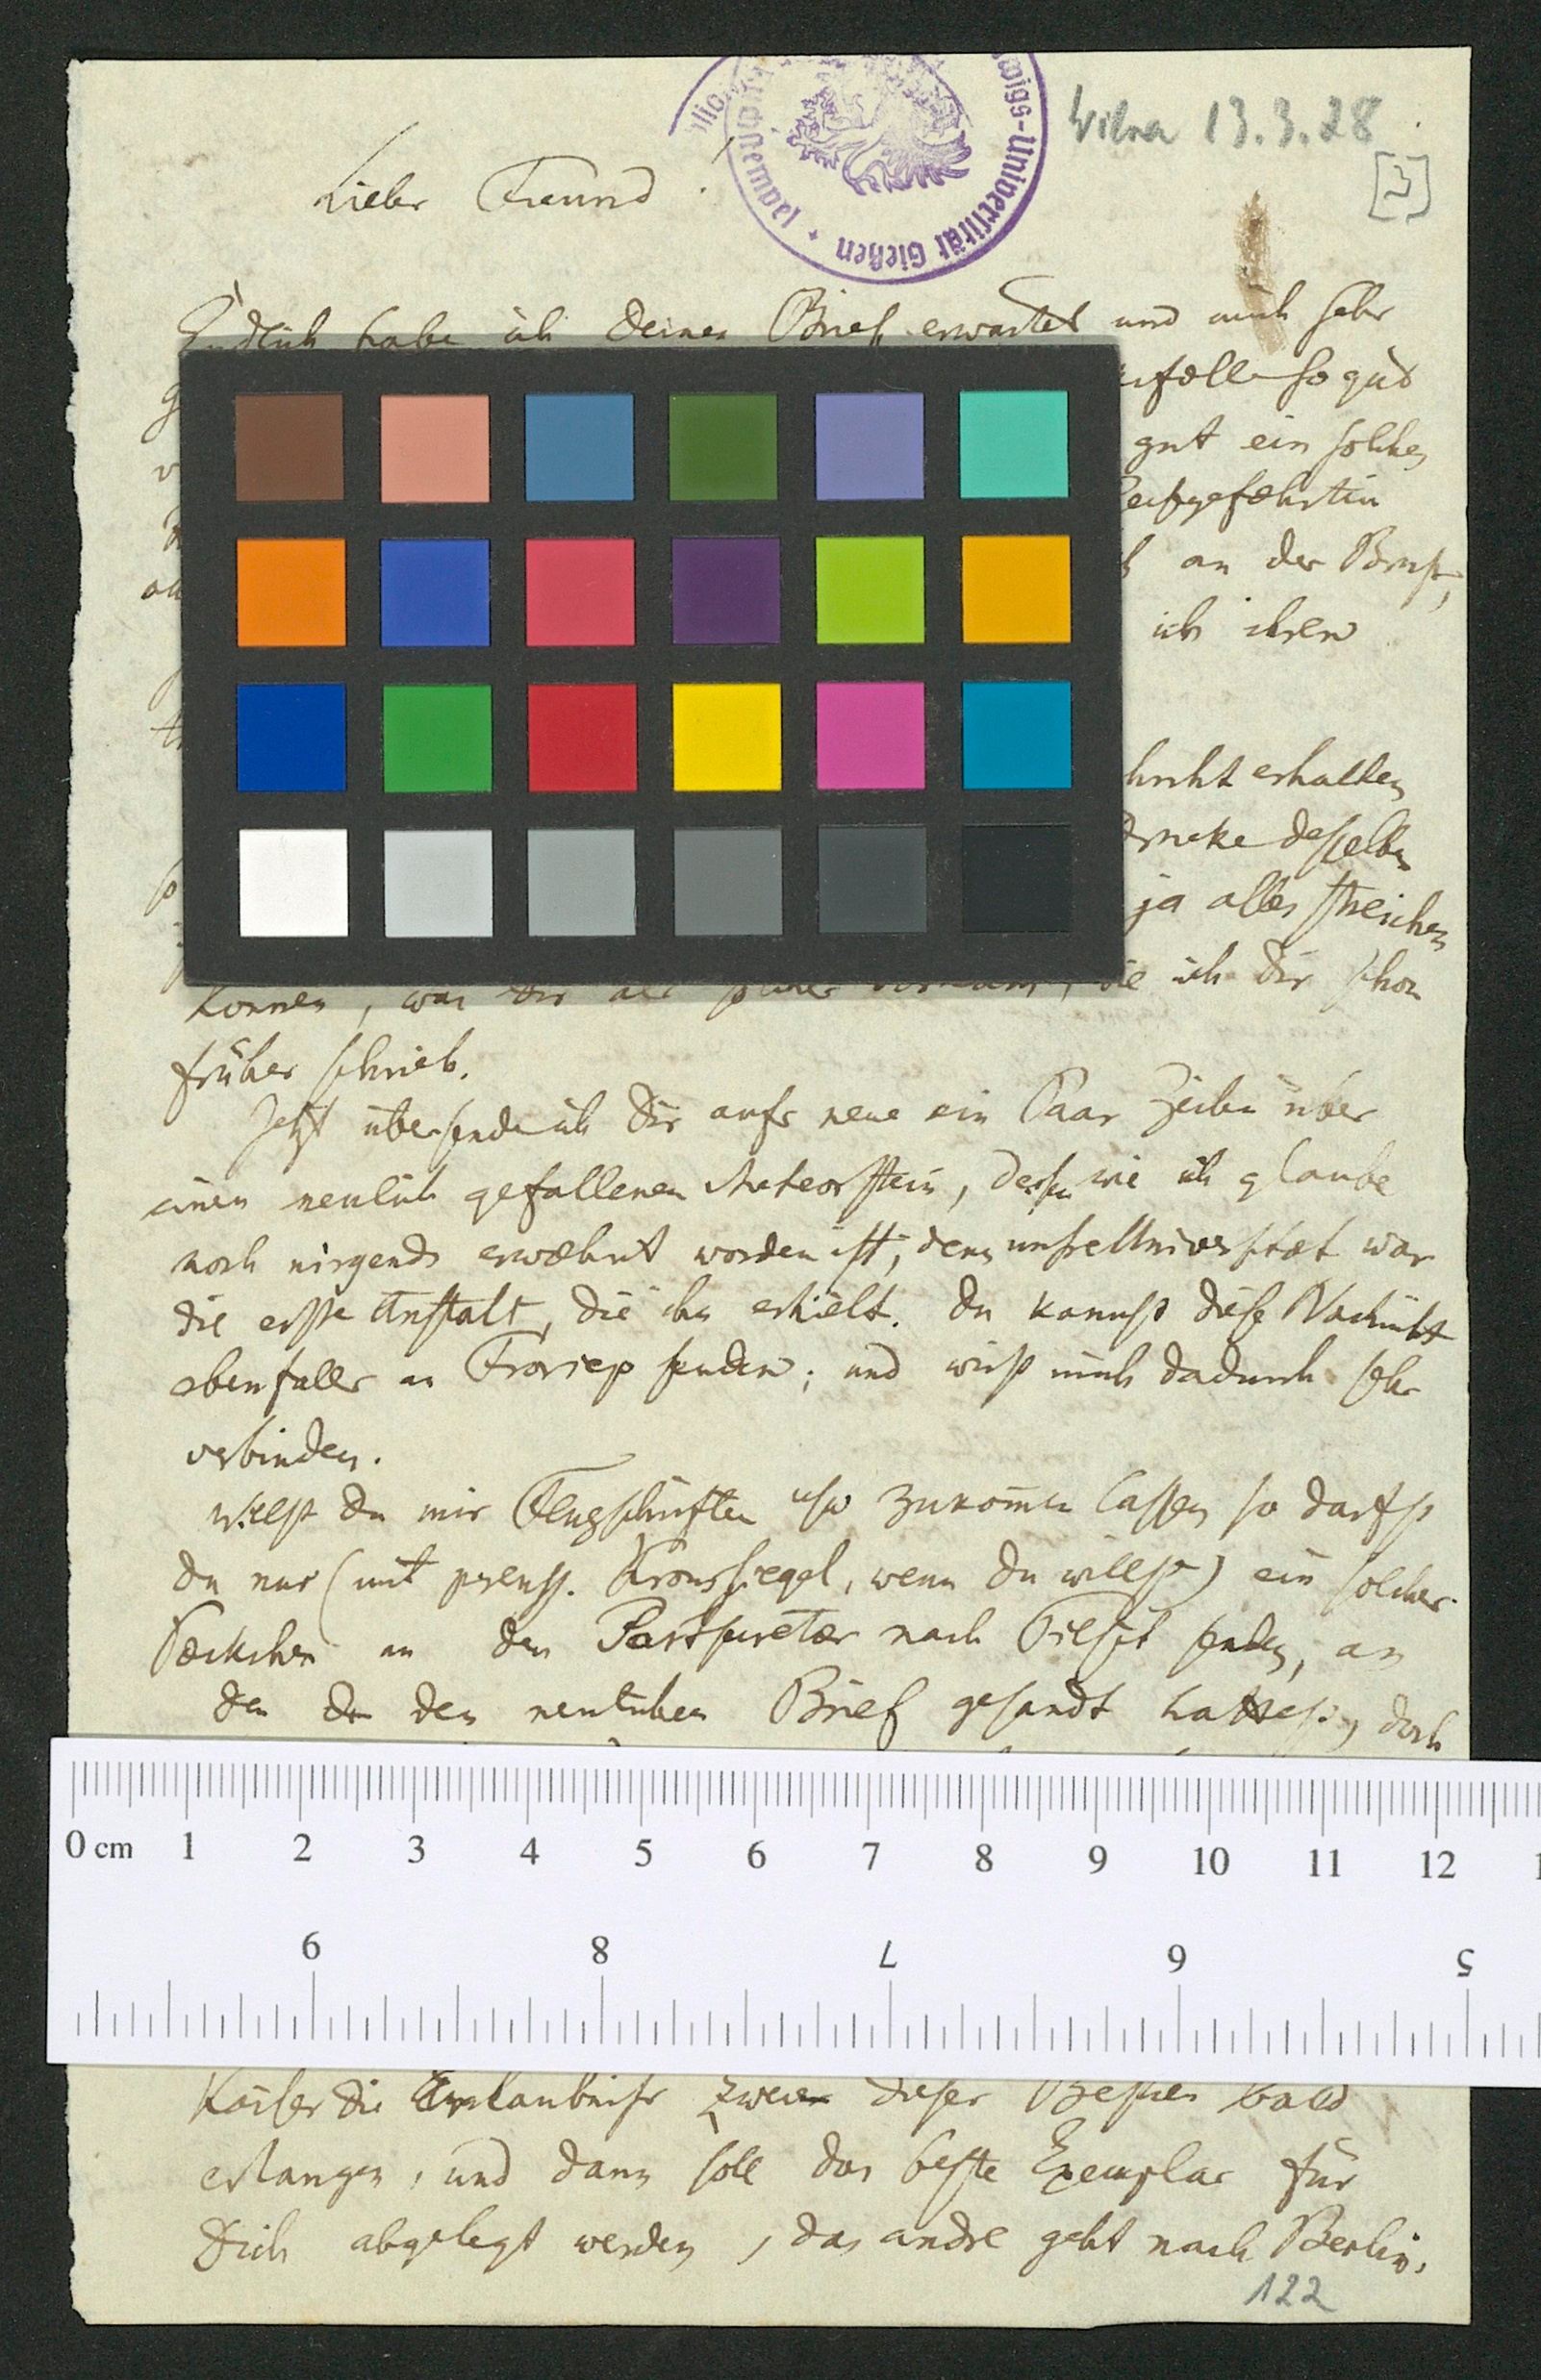 Wilna 13.3.28
[3]
wigs-Universität Gießen
Lieber Freund!
Endlich habe ich deinen Brief erwartet und mich sehr
so gut
gut ein solches
an der Brust,
ich ihren
erhalten
desselben
ja alles streichen
können, was Dir als wie ich Dir schon
früher schrieb.
Jetzt übersende ich Dir aufs neue ein Paar Zeilen über
einen neulich gefallenen Meteorstein, dessen wie ich glaube
noch nirgends erwæhnt worden ist, denn unsre Universitæt war
die erste Anstalt, die ihn erhielt. Du kannst diese Nachricht
ebenfalls an Froriep senden; und wirst mich dadurch sehr
verbinden.
Willst Du mir Flugschriften usw zukomen lassen so darfst
Du nur (mit preuss. Kronssiegel, wenn Du willst) ein solches
Pæckchen an den Postsecretær nach Tilsit senden, an
den du den neulichen Brief gesandt hattest, doch
0 cm 1 2 3 4 5 6 7 8 9 10 11 12
9 8 7 6 5
Kaiser die Erlaubniss zweier dieser Bestien bald
erlangen, und dann soll das beste Exemplar für
Dich abgelegt werden, das andre geht nach Berlin.
122